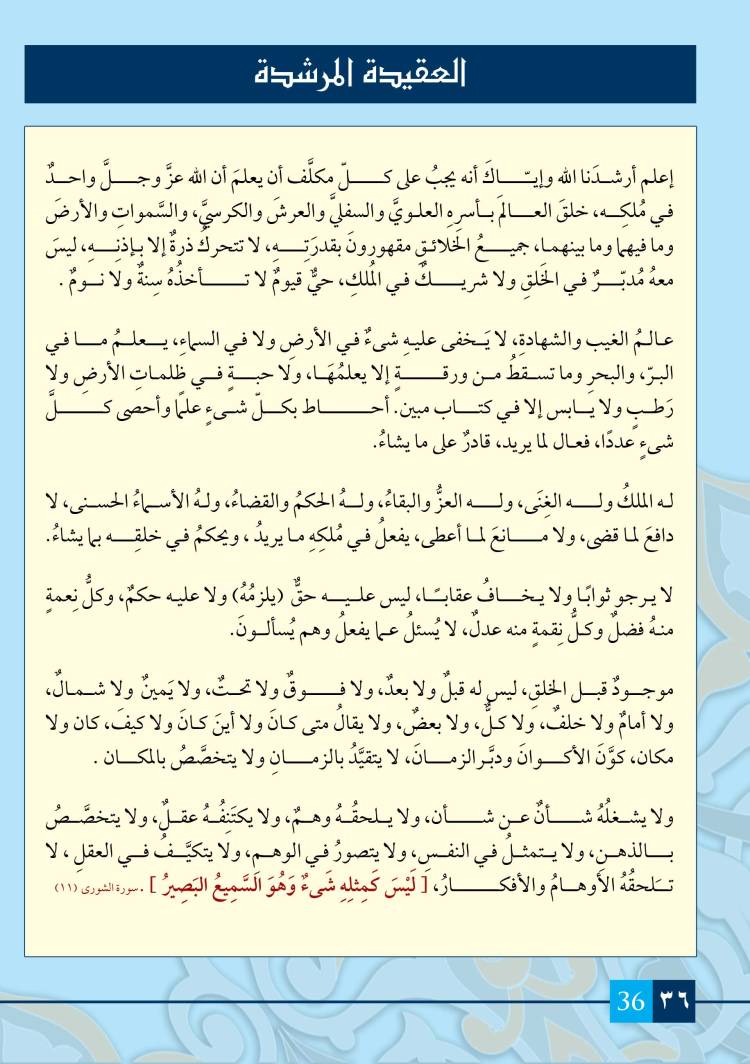 العقيدة المرشدة
إعلم أرشدَنا الله وإيّاكَ أنه يجبُ على كلّ مكلَّف أن يعلمَ أن الله عزَّ وجلَّ واحدٌ
في مُلكِه، خلقَ العالمَ بأسرِهِ العلويَّ والسفليَّ والعرشَ والكرسيَّ، والسَّمواتِ والأرضَ
وما فيهما وما بينهما، جميعُ الخلائقِ مقهورونَ بقدرَتِهِ، لا تتحركُ ذرةٌ إلا بإذنِهِ، ليسَ
معهُ مُدبّرٌ في الخَلقِ ولا شريكٌ في المُلكِ، حيٌّ قيومٌ لا تأخذُهُ سِنةٌ ولا نومٌ .
عالمُ الغيب والشهادةِ، لا يَخفى عليهِ شىءٌ في الأرضِ ولا في السماءِ، يعلمُ ما في
البرّ، والبحرِ وما تسقطُ من ورقةٍ إلا يعلمُهَا، ولا حبةٍ في ظلماتِ الأرضِ ولا
رَطبٍ ولا يابس إلا في كتاب مبين. أحاط بكلّ شىءٍ علمًا وأحصى كلَّ
شىءٍ عددًا، فعال لما يريد، قادرٌ على ما يشاءُ.
له الملكُ وله الغِنَى، وله العزُّ والبقاءُ، ولهُ الحكمُ والقضاءُ، ولهُ الأسماءُ الحسنى، لا
دافعَ لما قضى، ولا مانعَ لما أعطى، يفعلُ في مُلكِهِ ما يريدُ ، ويحكمُ في خلقِه بما يشاءُ.
لا يرجو ثوابًا ولا يخافُ عقابًا، ليس عليه حقٌّ (يلزمُهُ) ولا عليه حكمٌ، وكلُّ نِعمةٍ
منهُ فضلٌ وكلُّ نِقمةٍ منه عدلٌ، لا يُسئلُ عما يفعلُ وهم يُسألونَ.
موجودٌ قبل الخلقِ، ليس له قبلٌ ولا بعدٌ، ولا فوقٌ ولا تحتٌ، ولا يَمينٌ ولا شمالٌ،
ولا أمامٌ ولا خلفٌ، ولا كلٌّ، ولا بعضٌ، ولا يقالُ متى كانَ ولا أينَ كانَ ولا كيفَ، كان ولا
مكان، كوَّنَ الأكوانَ ودبَّر الزمانَ، لا يتقيَّدُ بالزمانِ ولا يتخصَّصُ بالمكان .
ولا يشغلُهُ شأنٌ عن شأن، ولا يلحقُهُ وهمٌ، ولا يكتَنِفُهُ عقلٌ، ولا يتخصَّصُ
بالذهنِ، ولا يتمثلُ في النفسِ، ولا يتصورُ في الوهمِ، ولا يتكيَّفُ في العقلِ ، لا
تلحقُهُ الأوهامُ والأفكارُ، [ لَيْسَ كَمِثلِهِ شَىءٌ وَهُوَ السَّمِيعُ البَصِيرُ ] .سورة الشورى (١١)
36 ٣٦